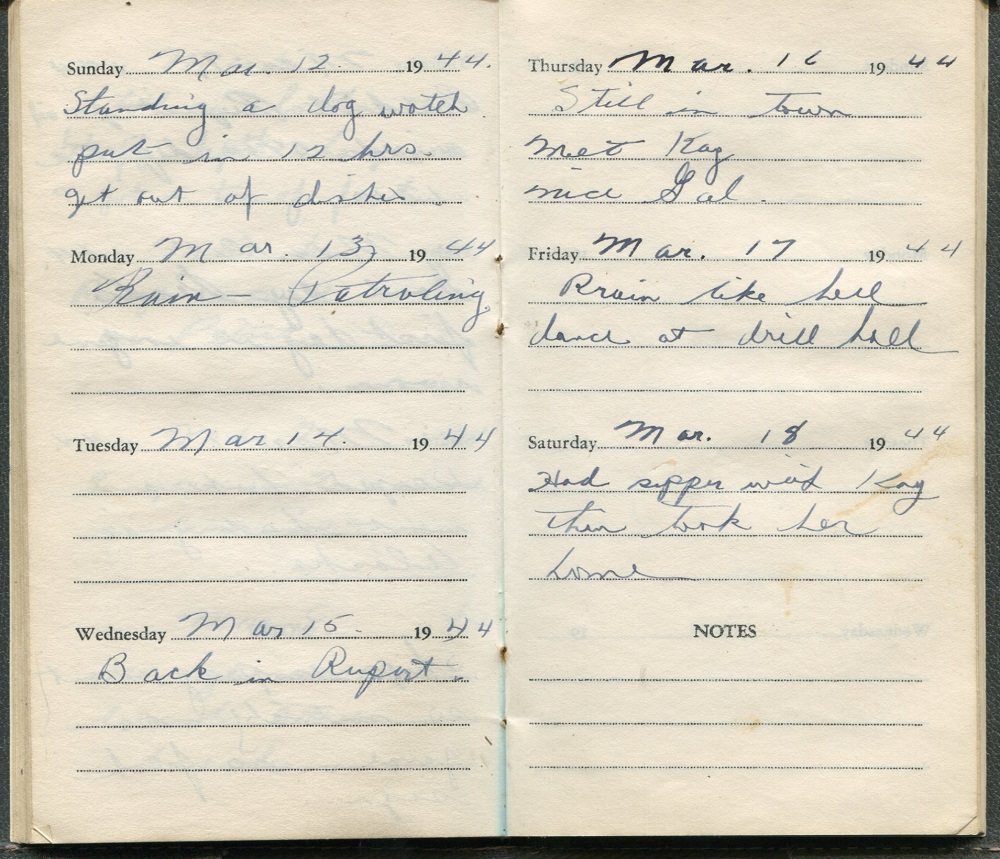 Sunday Mar. 12. 19 44.
Standing a dog watch
put in 12 hrs.
get out of dishes.
Monday Mar. 13 19 44
Rain – Patroling
Tuesday Mar 14. 19 44
Wednesday Mar 15. 19 44
Back in Rupert.
Thursday Mar. 16 19 44
Still in town
Met Kay
nice Gal.
Friday Mar. 17 19 44
Rrain like hell
dance at drill hall
Saturday Mar. 18 19 44
Had supper with Kay
then took her
home
NOTES